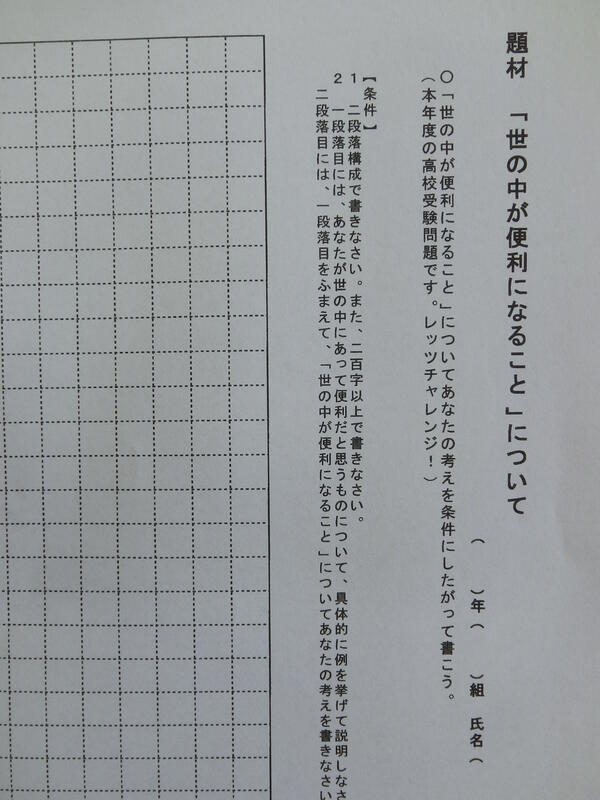 題材　「世の中が便利になること」について
（　　）年（　　）組　氏名（
〇「世の中が便利になること」についてあなたの考えを条件にしたがって書こう。
（本年度の高校受験問題です。レッツチャレンジ！）
【条件】
１　二段落構成で書きなさい。また、二百字以上で書きなさい。
２　一段落目には、あなたが世の中にあって便利だと思うものについて、具体的に例を挙げて説明しなさ
二段落目には、一段落目をふまえて、「世の中が便利になること」についてあなたの考えを書きなさい